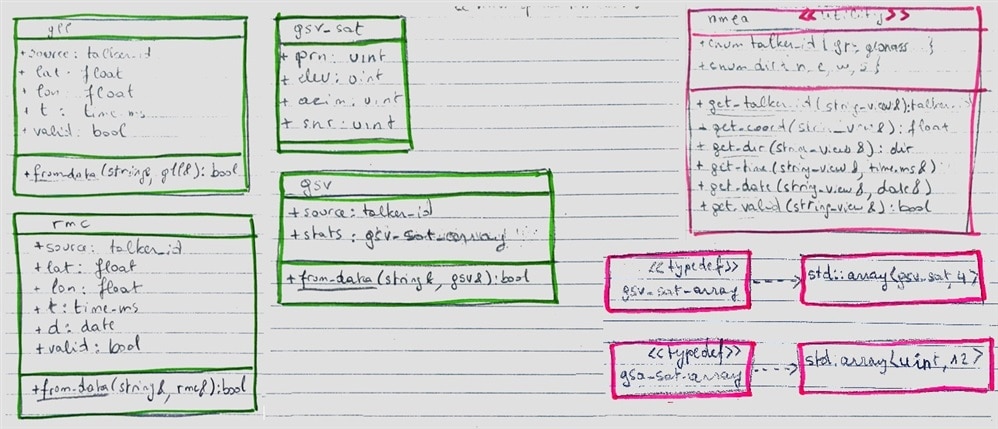 gll
+ source: talker_id
+ lat: float
+ lon: float
+ t: time_ms
+ valid: bool
+ from_data(string&, gll&): bool
rmc
+ source: talker_id
+ lat: float
+ lon: float
+ t: time_ms
+ d: date
+ valid: bool
+ from_data(string&, rmc&): bool
gsv_sat
+ prn: uint
+ elev: uint
+ azim: uint
+ snr: uint
gsv
+ source: talker_id
+ stats: gsv_sat_array
+ from_data(string&, gsv&): bool
nmea <<utility>>
+ enum talker_id { glonass }
+ enum dir { n, e, w, s }
+ get_talker_id(string_view&): talker
+ get_coord(string_view&): float
+ get_dir(string_view&): dir
+ get_time(string_view&, time_ms&)
+ get_date(string_view&, date&)
+ get_valid(string_view&): bool
<<typedef>>
gsv_sat_array
std::array<gsv_sat, 4>
<<typedef>>
gsa_sat_array
std::array<uint, 12>